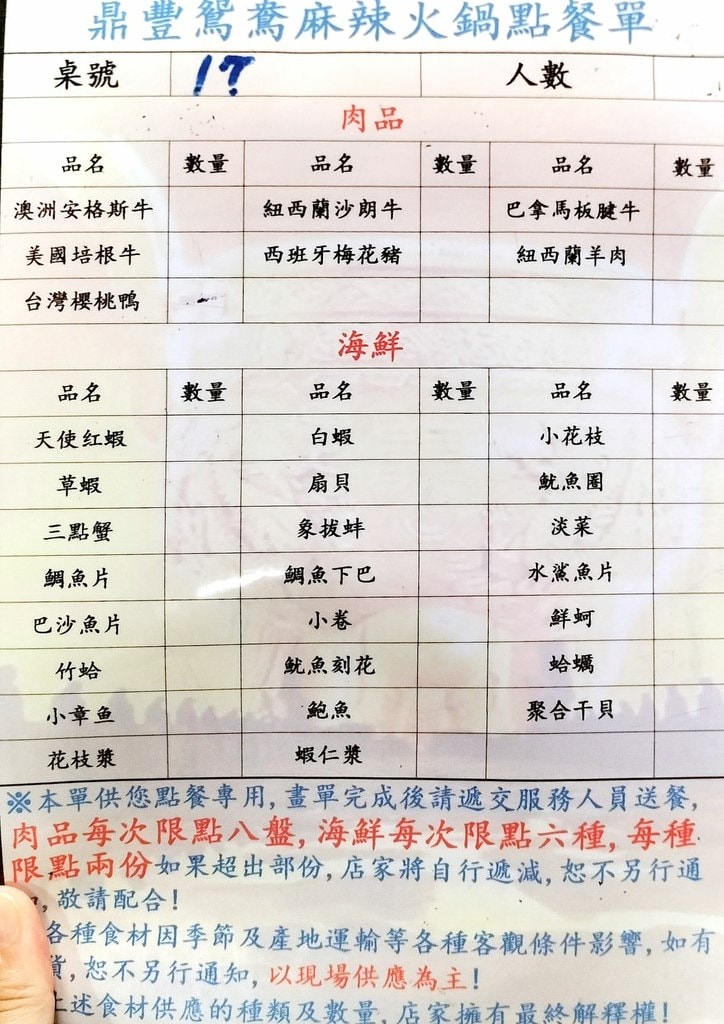 鼎豐鴛鴦麻辣火鍋點餐單
桌號 17 人數
肉品
品名 數量 品名 數量 品名 數量
澳洲安格斯牛 紐西蘭沙朗牛 巴拿馬板腱牛
美國培根牛 西班牙梅花豬 紐西蘭羊肉
台灣櫻桃鴨
海鮮
品名 數量 品名 數量 品名 數量
天使红蝦 白蝦 小花枝
草蝦 扇貝 魷魚圈
三點蟹 象拔蚌 淡菜
鯛魚片 鯛魚下巴 水鯊魚片
巴沙魚片 小卷 鮮蚵
竹蛤 魷魚刻花 蛤蠣
小章鱼 鮑魚 聚合干貝
花枝漿 蝦仁漿
※本單供您點餐專用,畫單完成後請遞交服務人員送餐,
肉品每次限點八盤,海鮮每次限點六種,每種
限點兩份如果超出部份,店家將自行遞減,恕不另行通
,敬請配合!
各種食材因季節及產地運輸等各種客觀條件影響,如有
貨,恕不另行通知,以現場供應為主!
上述食材供應的種類及數量,店家擁有最終解釋權!